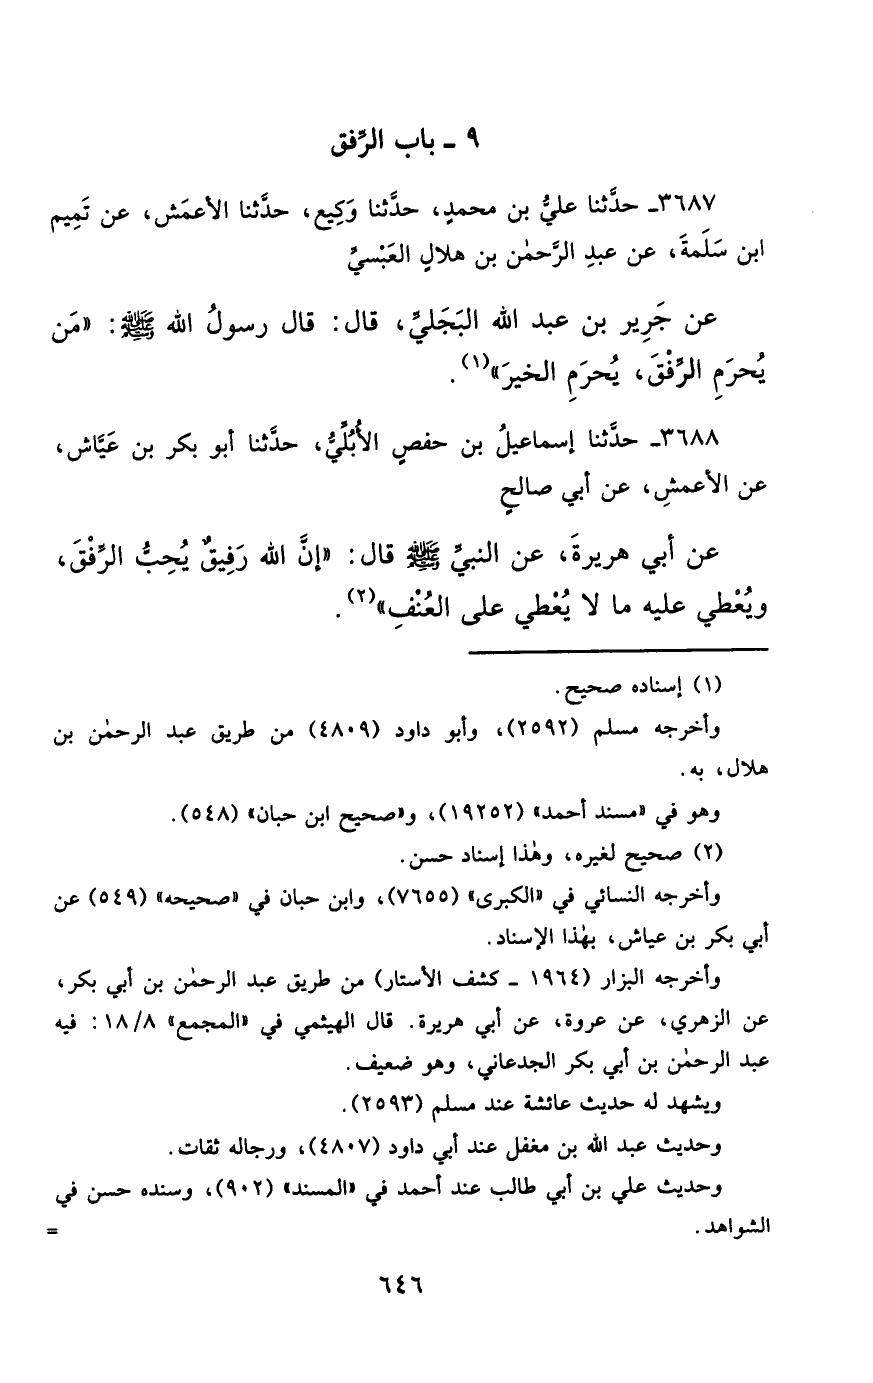 ٩ ـ باب الرِّفق
٣٦٨٧ـ حدَّثنا عليُّ بن محمدٍ، حدَّثنا وَكِيع، حدَّثنا الأعمَش، عن تَمِيم
ابن سَلَمةَ، عن عبدِ الرَّحمٰن بن هلالٍ العَبْسيِّ
عن جَرِير بن عبد الله البَجَليِّ، قال: قال رسولُ الله ﷺ: «مَن
يُحرَمِ الرِّفْقَ، يُحرَمِ الخيرَ»(١).
٣٦٨٨ـ حدَّثنا إسماعيلُ بن حفصٍ الأُبُلِّيُّ، حدَّثنا أبو بكر بن عَيَّاش،
عن الأعمشِ، عن أبي صالحٍ
عن أبي هريرةَ، عن النبيِّ ﷺ قال: «إنَّ الله رَفِيقٌ يُحِبُّ الرِّفْقَ،
ويُعْطي عليه ما لا يُعْطي على العُنْفِ»(٢).
(١) إسناده صحيح.
وأخرجه مسلم (٢٥٩٢)، وأبو داود (٤٨٠٩) من طريق عبد الرحمٰن بن
هلال، به.
وهو في «مسند أحمد» (١٩٢٥٢)، و«صحيح ابن حبان» (٥٤٨).
(٢) صحيح لغيره، وهٰذا إسناد حسن.
وأخرجه النسائي في «الكبرى» (٧٦٥٥)، وابن حبان في «صحيحه» (٥٤٩) عن
أبي بكر بن عياش، بهٰذا الإسناد.
وأخرجه البزار (١٩٦٤ ـ كشف الأستار) من طريق عبد الرحمٰن بن أبي بكر،
عن الزهري، عن عروة، عن أبي هريرة. قال الهيثمي في «المجمع» ١٨/٨: فيه
عبد الرحمٰن بن أبي بكر الجدعاني، وهو ضعيف.
ويشهد له حديث عائشة عند مسلم (٢٥٩٣).
وحديث عبد الله بن مغفل عند أبي داود (٤٨٠٧)، ورجاله ثقات.
وحديث علي بن أبي طالب عند أحمد في «المسند» (٩٠٢)، وسنده حسن في
الشواهد. =
٦٤٦